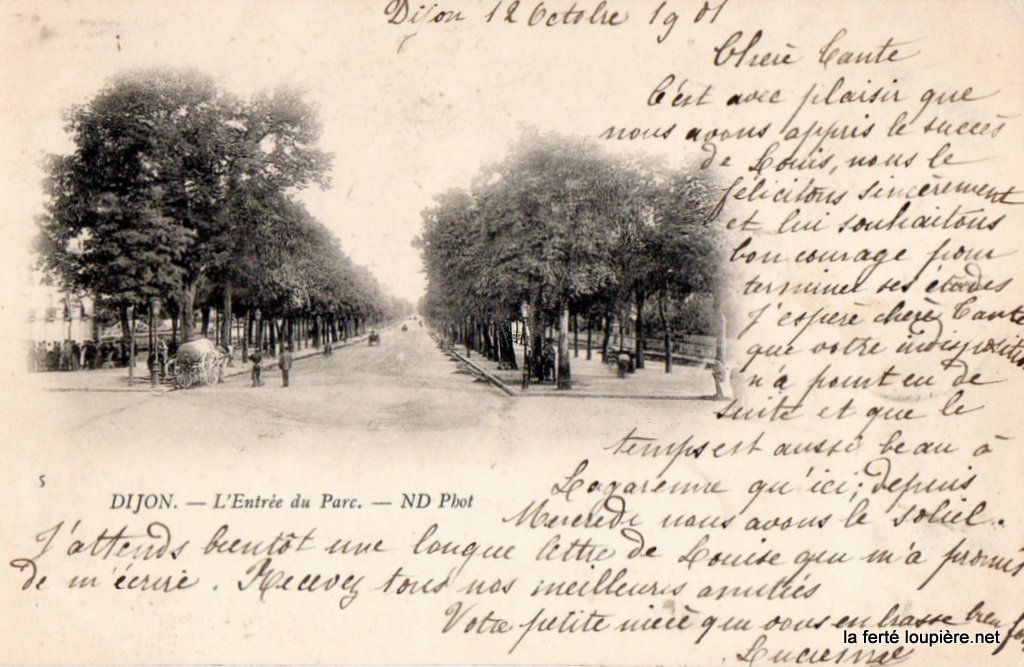 Dijon 12 Octobre 1901
Chère Tante
C'est avec plaisir que
nous avons appris le succès
de Louis, nous le
félicitons sincèrement
et lui souhaitons
bon courage pour
terminer ses études
J'espère chère Tante
que votre indisposition
n'a point eu de
suite et que le
temps est aussi beau à
Lagarenne qu'ici; depuis
Mercredi nous avons le soleil.
J'attends bientôt une longue lettre de Louise qui m'a promis
de m'écrire. Recevez tous nos meilleures amitiés
Votre petite nièce qui vous embrasse bien
Lucienne
5
DIJON. — L'Entrée du Parc. — ND Phot
la ferté loupière.net